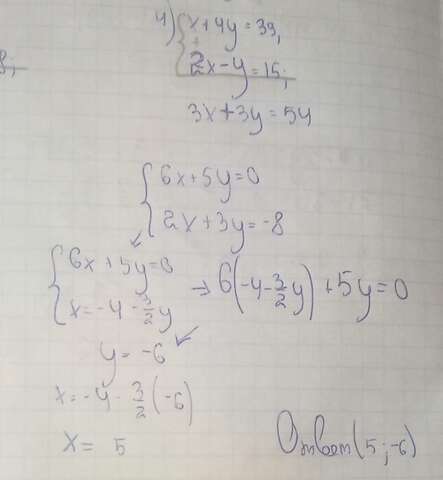 4) { x+4y=39,
2x-y=15;
3x+3y=54
{ 6x+5y=0
2x+3y=-8
{ 6x+5y=0
x=-4-3/2y → 6(-4-3/2y)+5y=0
y=-6
x=-4-3/2(-6)
x= 5
Ответ(5;-6)